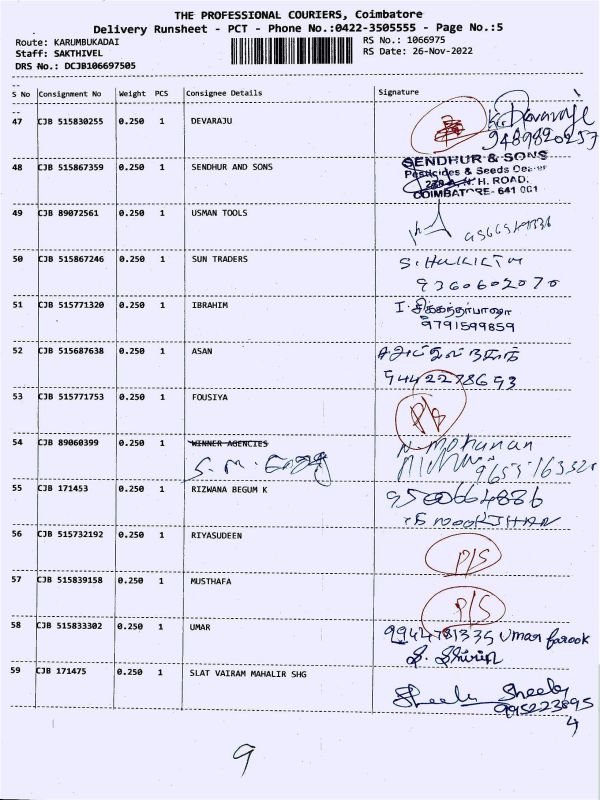 THE PROFESSIONAL COURIERS, Coimbatore
Delivery Runsheet - PCT - Phone No.:0422-3505555 - Page No.:5
Route: KARUMBUKADAI RS No.: 1066975
Staff: SAKTHIVEL RS Date: 26-Nov-2022
DRS No.: DCJB106697505
S No Consignment No Weight PCS Consignee Details Signature
47 CJB 515830255 0.250 1 DEVARAJU K. Devaraje
9489820257
48 CJB 515867359 0.250 1 SENDHUR AND SONS SENDHUR & SONS
Pesticides & Seeds Dealer
N. H. ROAD,
COIMBATORE- 641 001
49 CJB 89072561 0.250 1 USMAN TOOLS
50 CJB 515867246 0.250 1 SUN TRADERS
9360602070
51 CJB 515771320 0.250 1 IBRAHIM I. சிக்கந்தர்பாஷா
9791599859
52 CJB 515687638 0.250 1 ASAN
9442278693
53 CJB 515771753 0.250 1 FOUSIYA P/S
54 CJB 89060399 0.250 1 WINNER AGENCIES N. Mohanan
S. M. Engg
55 CJB 171453 0.250 1 RIZWANA BEGUM K 9500664886
NOORJHAN
56 CJB 515732192 0.250 1 RIYASUDEEN P/S
57 CJB 515839158 0.250 1 MUSTHAFA P/S
58 CJB 515833302 0.250 1 UMAR 9944781335 Umar farook
S. Shirin
59 CJB 171475 0.250 1 SLAT VAIRAM MAHALIR SHG
Sheela Sheela
995223895
4
9